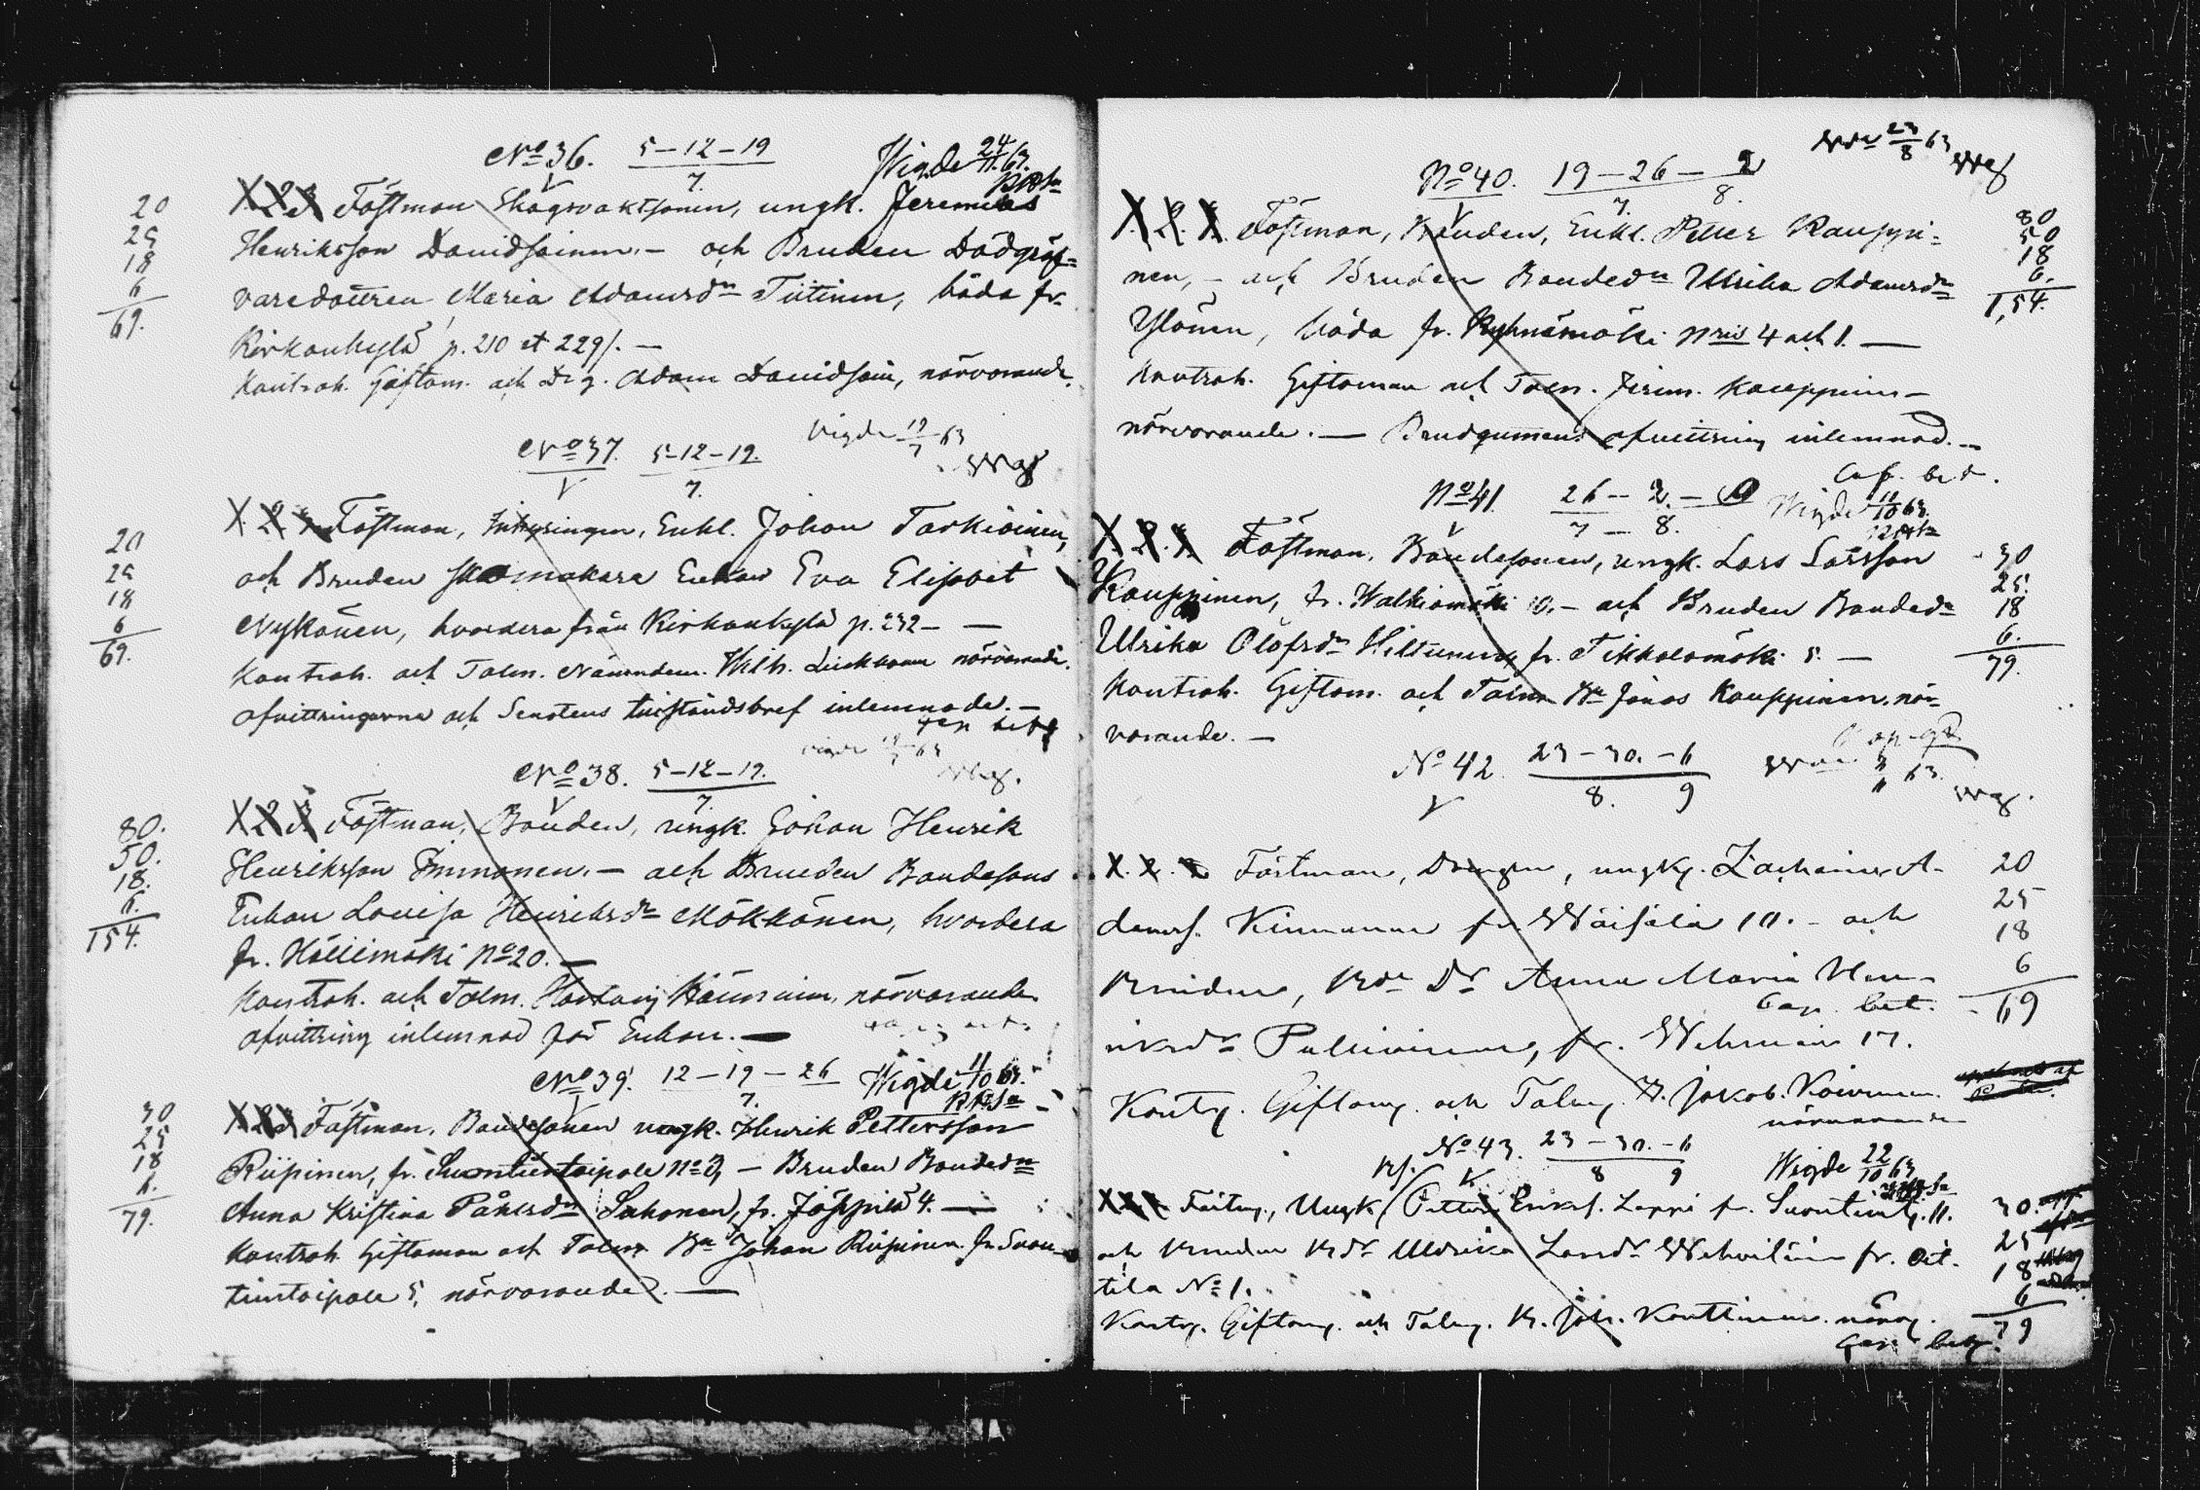 No 36. 5-12-19
7.
Wigde 24/11 63.
20
25
18
6
69.
X. 2. 3 Fästman Skogvaktsonen, ungk. Jeremias
Henriksson Davidsainen. – och Bruden Dödgräf-
varedottren Maria Adamsdr Tiitinen, båda fr.
Kirkonkylä p. 210 et 229/. –
Kontrah. Giftom. och Drg. Adam Davidsain, närvarande.
No 37. 5-12-19.
7.
Vigde 19/7 63
20
25
18
6
69.
X. 2. 3 Fästman, Inhysingen, Enkl. Johan Tarkiainen,
och Bruden Skomakare Enkan Eva Elisabet
Nykänen, hvardera från Kirkonkylä p. 232 –
Kontrah. och Talm. Nämndem. Wilh. närvarande.
Afvittringarna och Senatens tillståndsbref inlemnade. –
No 38. 5-12-19.
7.
Vigde 19/7 63
80.
50.
18.
6.
154.
X. 2. 3 Fästman, Bonden, ungk. Johan Henrik
Henriksson Immonen. – och Bruden Bondesons
Enkan Lovisa Henriksdr Mökkönen, hvardera
fr. Hällimäki No 20. –
Kontrah. och Talm. närvarande
Afvittring inlemnad för Enkan. –
No 39. 12-19-26
7.
Wigde 11/10 63.
30
25
18
6.
79.
X. 2. 3 Fästman, Bondesonen ungk. Henrik Pettersson
Riipinen, fr. Suontientaipale No 3, – Bruden Bondedr
Anna Kristina Påhlsdr Suhonen, fr. Jäppilä 4. –
Kontrah. Giftoman och Talm Bn Johan Riipinen fr Suon-
tientaipale 5, närvarande. –
No 40. 19-26-2
7. 8.
23/8 63
80
50
18
6.
1,54.
X. 2. 3. Fästman, Bonden, Enkl. Petter Kauppi-
nen, – och Bruden Bondedr Ulrika Adamsdr
Ylönen, båda fr. Kylmämäki Nris 4 och 1. –
Kontrah. Giftoman och Talm. Jerem. Kauppinen –
närvarande. – Brudgummens afvittring inlemnad. –
No 41 26-2-9
7-8.
Wigde 11/10 63.
30
25.
18
6.
79.
X. 2. 3. Fästman, Bondesonen, ungk. Lars Larsson
Kauppinen, fr. Walkiamäki 10. – och Bruden Bondedr
Ulrika Olofsdr Hiltunen fr. Tikkalamäki 5. –
Kontrah. Giftom. och Talm Bn Jonas Kauppinen. när-
varande. –
No 42. 23-30.-6
8. 9
63.
20
25
18
6
69
X. 2. 3 Fästman, Drengen, ungkg. Zacharias A-
damss. Kinnunen fr. Wäisälä 10. – och
Bruden, Bdr Dr Anna Maria Hen-
Cap. bet.
riksdr Pulliainen, fr. Wehmais 17.
Kontrg. Giftomg. och Talmg. B. Jakob. Koivunen.
närvarande
No 43. 23-30.-6
8 9
Wigde 22/10 63
30.
25
18
6
79
X. 2. 3 Fästmg., Ungk Petter Erikss. Leppi fr. Suontientp. 11.
och Bruden Bdr Ulrika Larsdr Wehviläin fr. Ait-
tila No 1.
Kontrg. Giftomg. och Talmg. B. Joh. Konttinen. närvg.
Cap. betg.